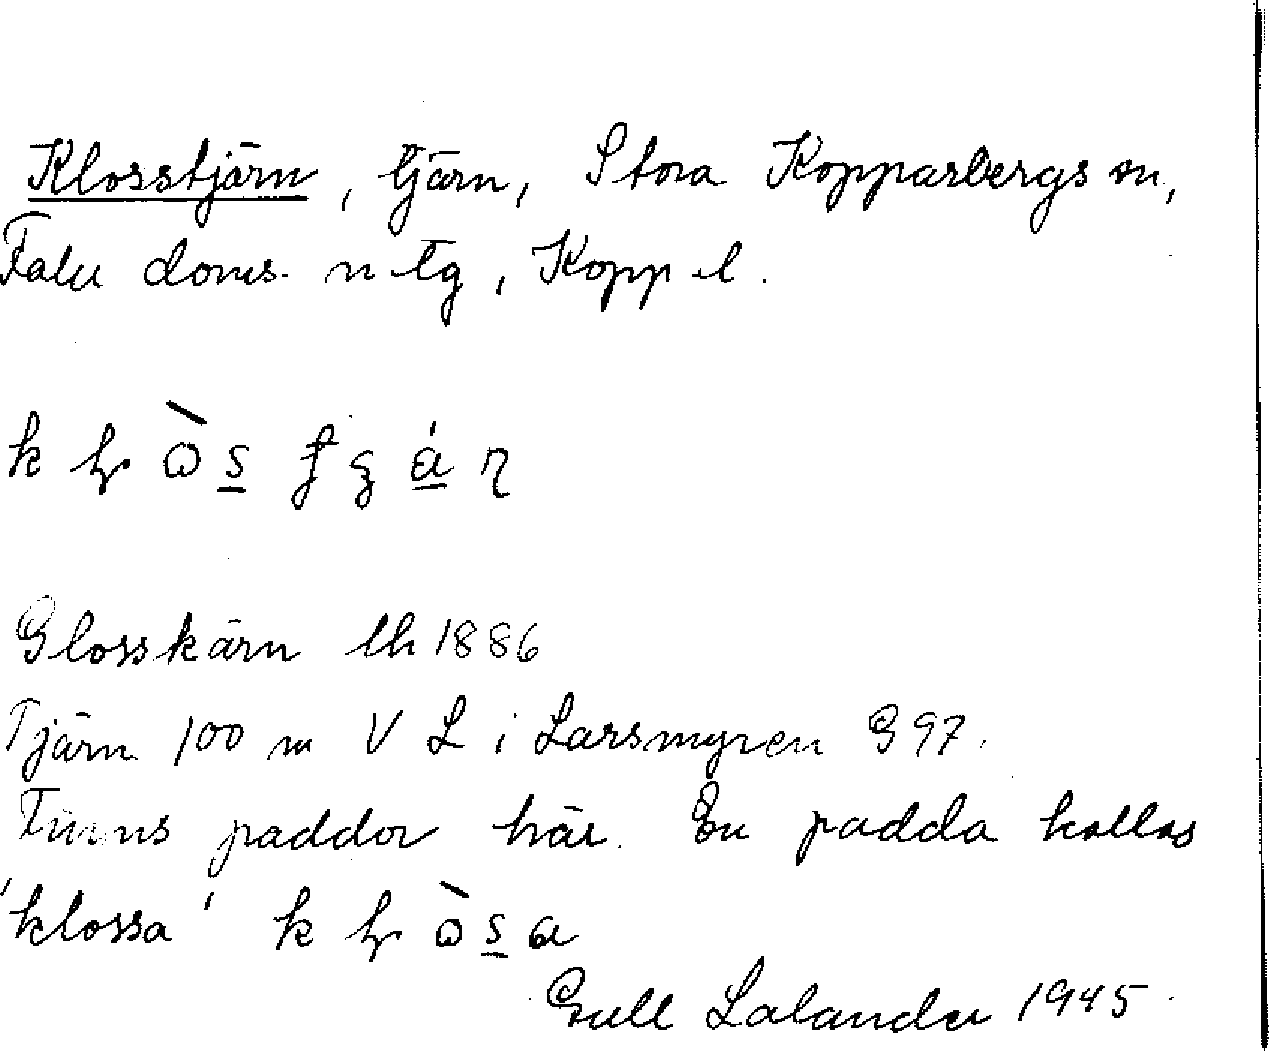 Klosstjärn, tjärn, Stora Kopparbergs sn,
Falu doms. n tg, Kopp l.
Glosskärn lh 1886
Tjärn 100 m V L i Larsmyren G 97.
Finns paddor här. En padda kallas
'klossa'
Gull Lalander 1945